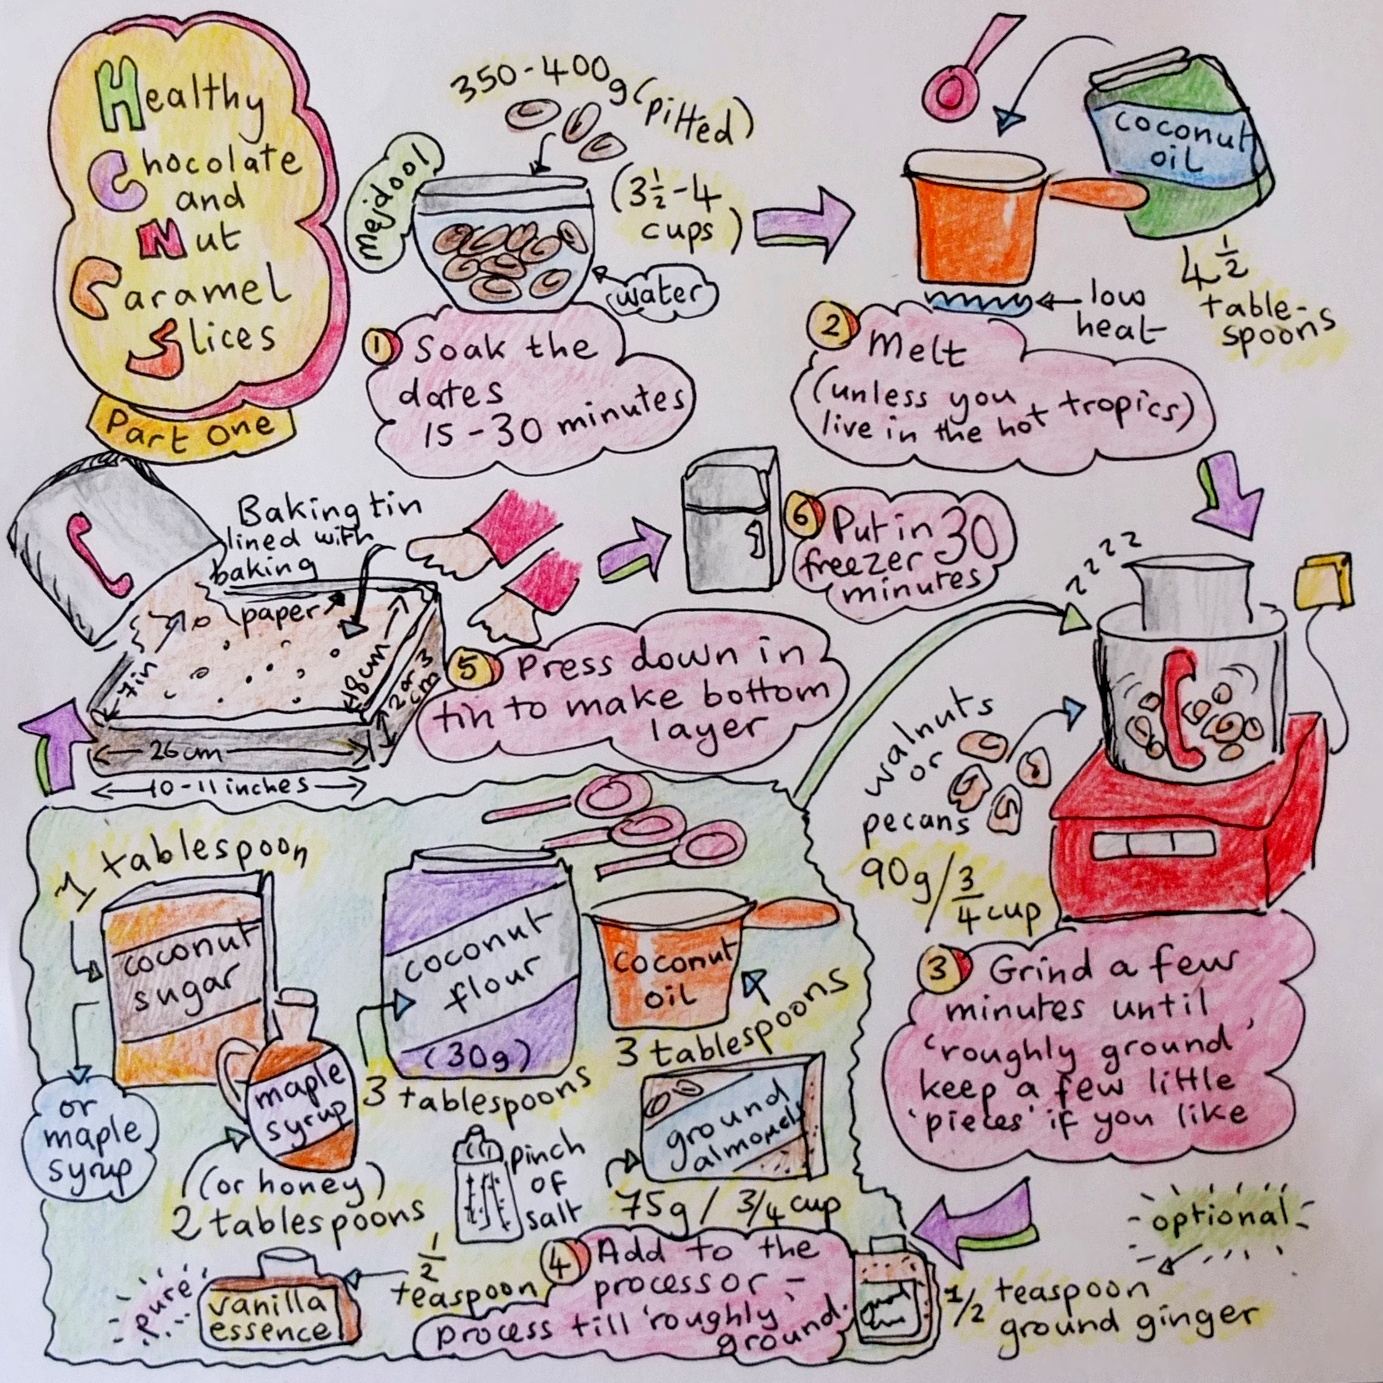 Healthy
Chocolate
and
Nut
Caramel
Slices
Part One
350-400g (pitted)
mejdool
(3½-4
cups)
water
1 Soak the
dates
15-30 minutes
coconut
oil
4½
table-
spoons
low
heat
2 Melt
(unless you
live in the hot tropics)
zzzz
walnuts
or
pecans
90g/¾ cup
3 Grind a few
minutes until
'roughly ground'
keep a few little
'pieces' if you like
optional
1/2 teaspoon
ground ginger
1 tablespoon
coconut
sugar
or
maple
syrup
maple
syrup
(or honey)
2 tablespoons
coconut
flour
(30g)
3 tablespoons
coconut
oil
3 tablespoons
ground
almonds
75g / 3/4 cup
pinch
of
salt
pure
vanilla
essence
½
teaspoon
4 Add to the
processor -
process till 'roughly'
ground.
Baking tin
lined with
baking
paper
7in
18cm
2 or 3
cm
26cm
10-11 inches
5 Press down in
tin to make bottom
layer
6 Put in 30
freezer
minutes